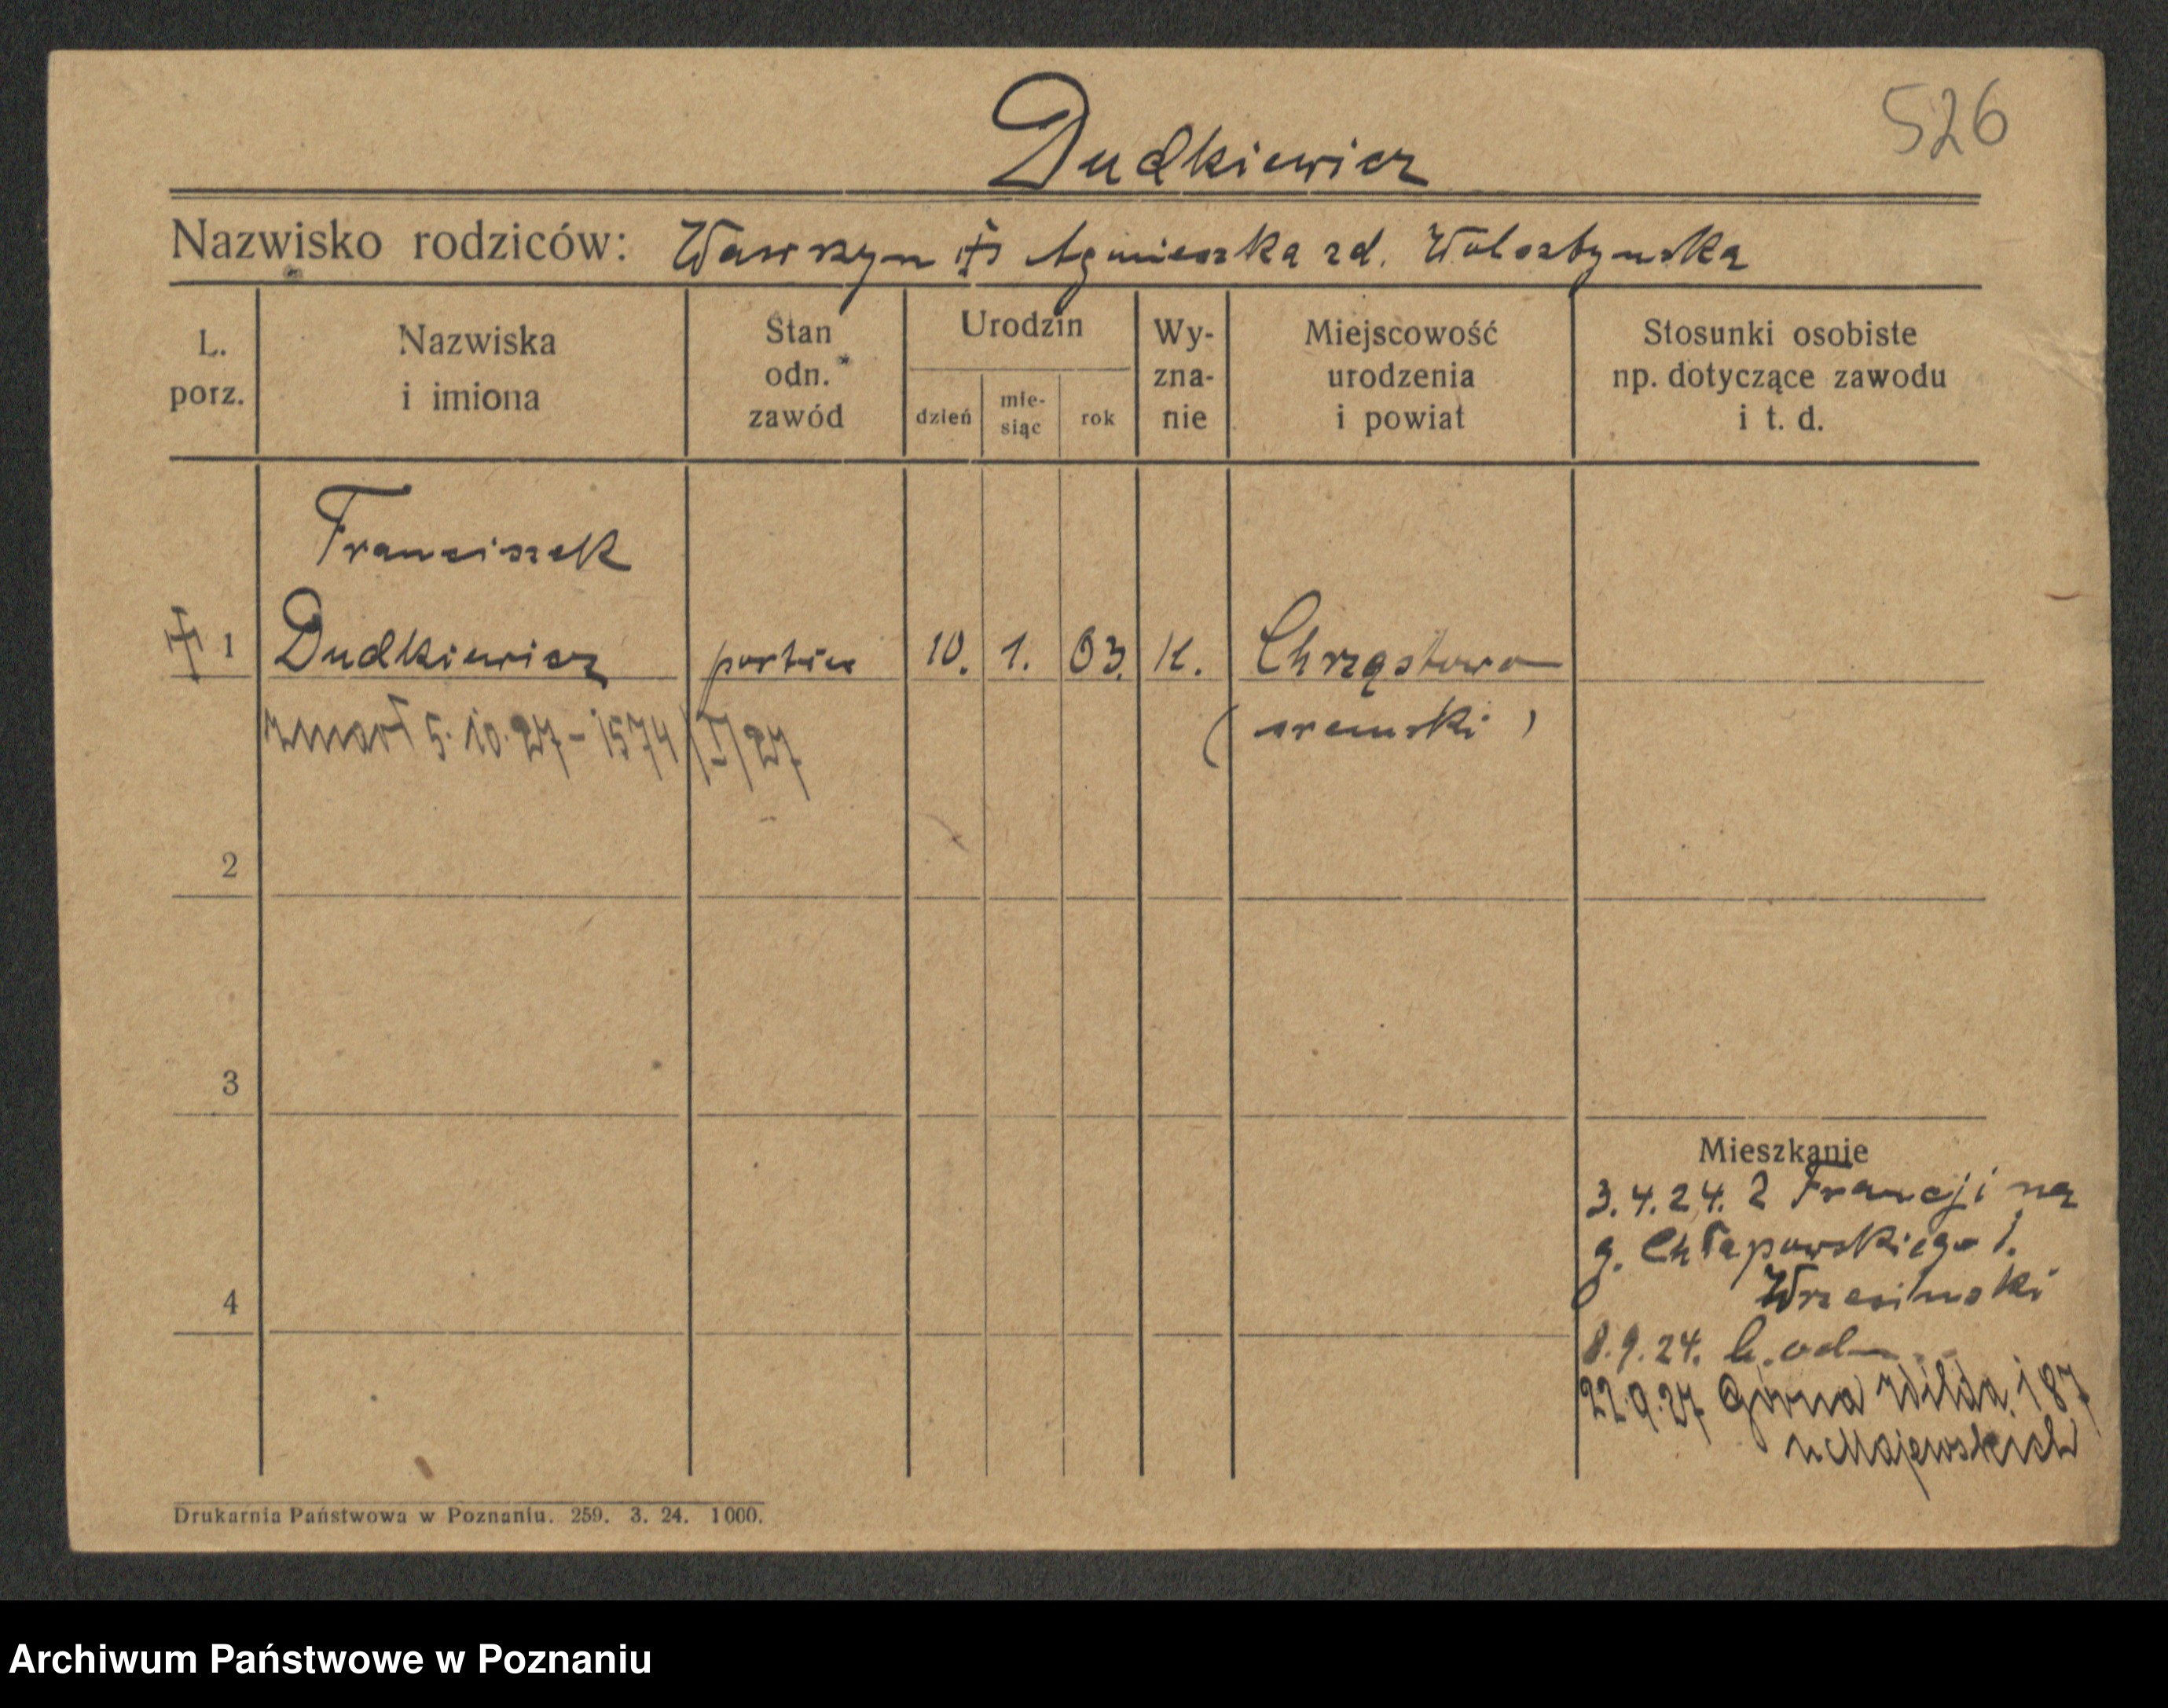 526
Dudkiewicz
Nazwisko rodziców: Wawrzyn Agnieszka zd.
L. porz.
Nazwiska i imiona
Stan odn.* zawód
Urodzin
dzień
mie-siąc
rok
Wy-zna-nie
Miejscowość urodzenia i powiat
Stosunki osobiste np. dotyczące zawodu i t. d.
Franciszek
1 Dudkiewicz 10. 1. 03. K. Chrząstowo
zmarł 5. 10. 27 - 1574/I/27 (sremski)
2
3
4
Mieszkanie
3.4.24. z Francji na
g. Chłapowskiego 1.
Wrzesinski
8.9.24.
22.9.27 Górna Wilda 187
u Majewskich
Drukarnia Państwowa w Poznaniu. 259. 3. 24. 1000.
Archiwum Państwowe w Poznaniu